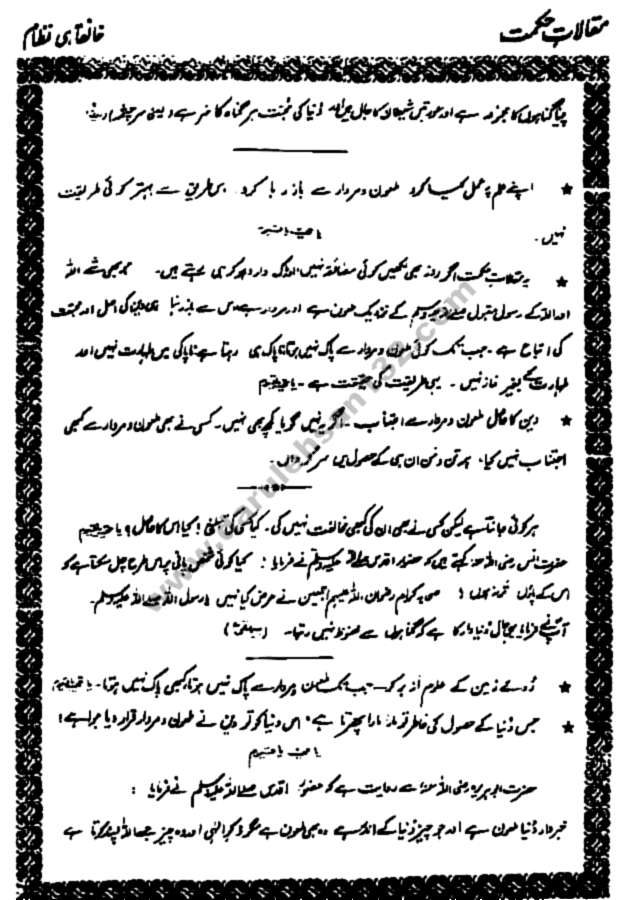 مقالات حکمت
خانقاہی نظام
پینا گناہوں کا مجموعہ ہے اور عورتیں شیطان کا جال ہیں اور دنیا کی محبت ہر گناہ کا سر ہے
★ اپنے علم پر عمل کیا کرو ملعون و مردار سے باز رہا کرو اس طریق سے بہتر کوئی طریقت
نہیں۔ یا حی یا قیوم
★ یہ مقالات حکمت اگر روز بھی لکھیں کوئی مضائقہ نہیں ہیں۔ جو بھی شے اللہ
اور اللہ کے رسول مقبول صلے اللہ علیہ وسلم کے نزدیک ملعون ہے اور مردار ہے اس سے باز رہنا ہی دین کی اصل اور محبت
کی اتباع ہے۔ جب تک کوئی ملعون و مردار سے پاک نہیں ہوتا ناپاک ہی رہتا ہے ناپاکی میں طہارت نہیں اور
طہارت کے بغیر نماز نہیں۔ یہی طریقت کی حقیقت ہے۔ یا حی یا قیوم
★ دین کا حاصل ملعون و مردار سے اجتناب۔ اگر یہ نہیں گویا کچھ بھی نہیں۔ کسی نے بھی ملعون و مردار سے کبھی
اجتناب نہیں کیا، ہر تن و من ان ہی کے حصول میں سرگرداں۔
ہر کوئی جانتا ہے لیکن کسی نے بھی ان کی کبھی مخالفت نہیں کی۔ کیا کسی کی تسلی! کیا اس کا حاصل؟ یا حی یا قیوم
حضرت انس رضی اللہ عنہ کہتے ہیں کہ حضور اقدس صلے اللہ علیہ وسلم نے فرمایا: کیا کوئی شخص پانی پر اس طرح چل سکتا ہے کہ
اس کے پاؤں تر نہ ہوں! صحابہ کرام رضوان اللہ علیہم اجمعین نے عرض کیا نہیں یا رسول اللہ صلے اللہ علیہ وسلم۔
آپ نے فرمایا یہی حال دنیا دار کا ہے کہ گناہوں سے محفوظ نہیں رہتا۔ (بیہقی)
★ روئے زمین کے علوم از بر کر۔ جب تک ملعون و مردار سے پاک نہیں ہوتا، کبھی پاک نہیں ہوتا۔ یا حی یا قیوم
★ جس دنیا کے حصول کی خاطر تو مارا مارا پھرتا ہے، اس دنیا کو تو دین نے ملعون و مردار قرار دیا ہوا ہے!
یا حی یا قیوم
حضرت ابوہریرہ رضی اللہ عنہ سے روایت ہے کہ حضور اقدس صلے اللہ علیہ وسلم نے فرمایا:
خبردار دنیا ملعون ہے اور جو چیز دنیا کے اندر ہے وہ بھی ملعون ہے مگر ذکر الٰہی اور وہ چیز جسے اللہ پسند کرتا ہے
www.darulehsan122.com